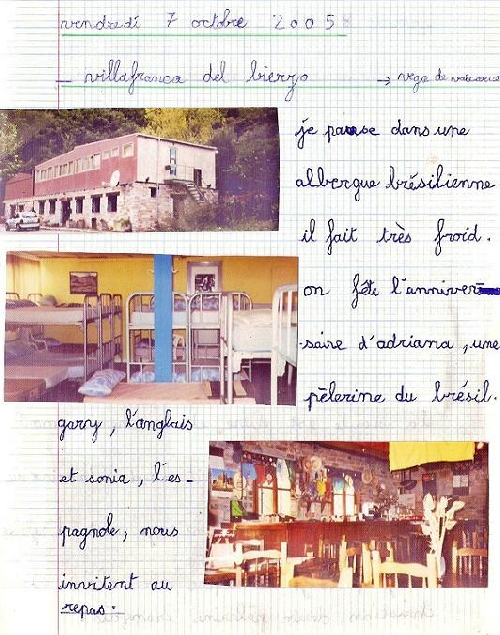 vendredi 7 octobre 2005
- villafranca del bierzo → vega de valcarce
je pause dans une
albergue brésilienne
il fait très froid.
on fête l'anniver-
saire d'adriana, une
pèlerine du brésil.
gary, l'anglais
et sonia, l'es-
pagnole, nous
invitent au
repas.